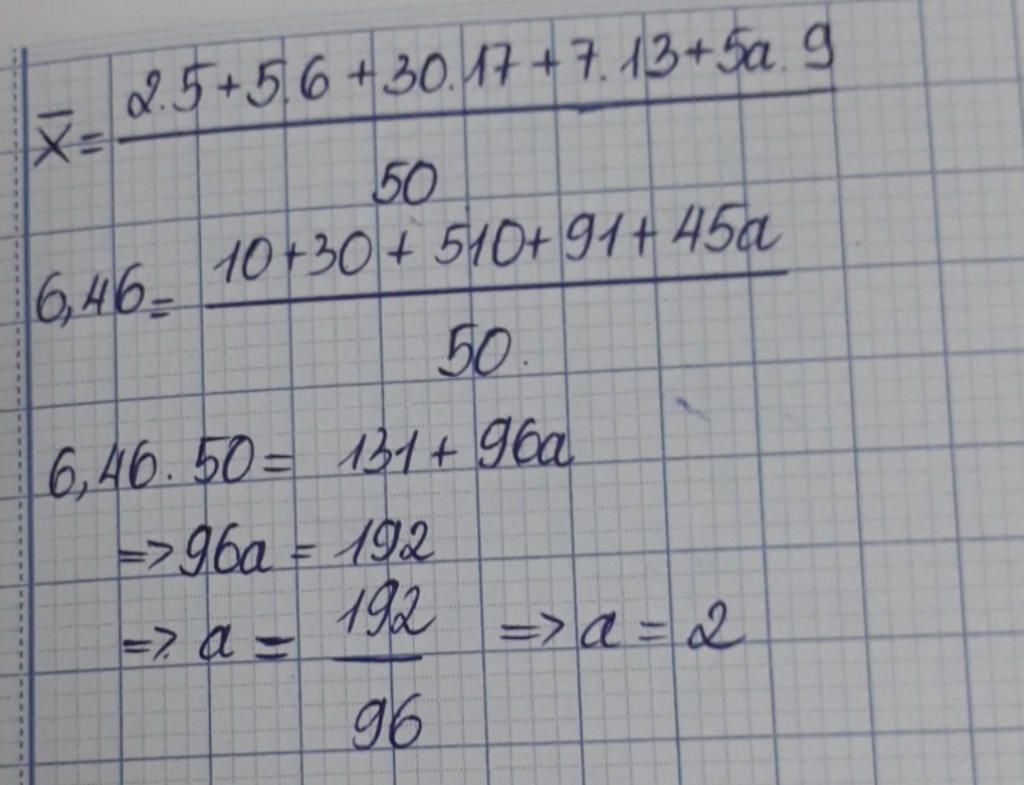 x̄ = (2.5+5.6+30.17+7.13+5a.9)/50
6,46 = (10+30+510+91+45a)/50.
6,46.50 = 131 + 96a
=> 96a = 192
=> a = 192/96 => a = 2